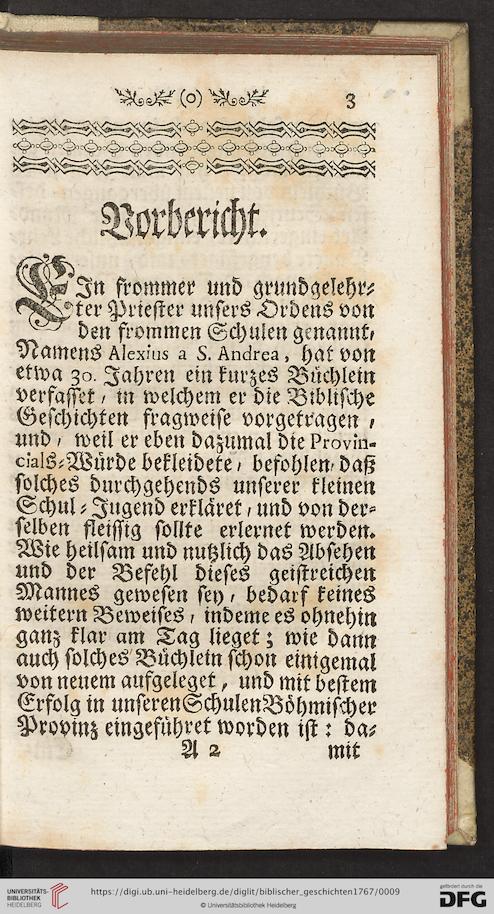 (o) 3
Vorbericht.
EIn frommer und grundgelehr-
ter Priester unsers Ordens von
den frommen Schulen genannt,
Namens Alexius a S. Andrea, hat von
etwa 30. Jahren ein kurzes Büchlein
verfasset, in welchem er die Biblische
Geschichten fragweise vorgetragen,
und, weil er eben dazumal die Provin-
cials-Würde bekleidete, befohlen, daß
solches durchgehends unserer kleinen
Schul-Jugend erkläret, und von der-
selben fleissig sollte erlernet werden.
Wie heilsam und nutzlich das Absehen
und der Befehl dieses geistreichen
Mannes gewesen sey, bedarf keines
weitern Beweises, indeme es ohnehin
ganz klar am Tag lieget; wie dann
auch solches Büchlein schon einigemal
von neuem aufgeleget, und mit bestem
Erfolg in unseren Schulen Böhmischer
Provinz eingeführet worden ist: da-
A 2 mit
UNIVERSITÄTS-
BIBLIOTHEK
HEIDELBERG
https://digi.ub.uni-heidelberg.de/diglit/biblischer_geschichten1767/0009
© Universitätsbibliothek Heidelberg
gefördert durch die
DFG